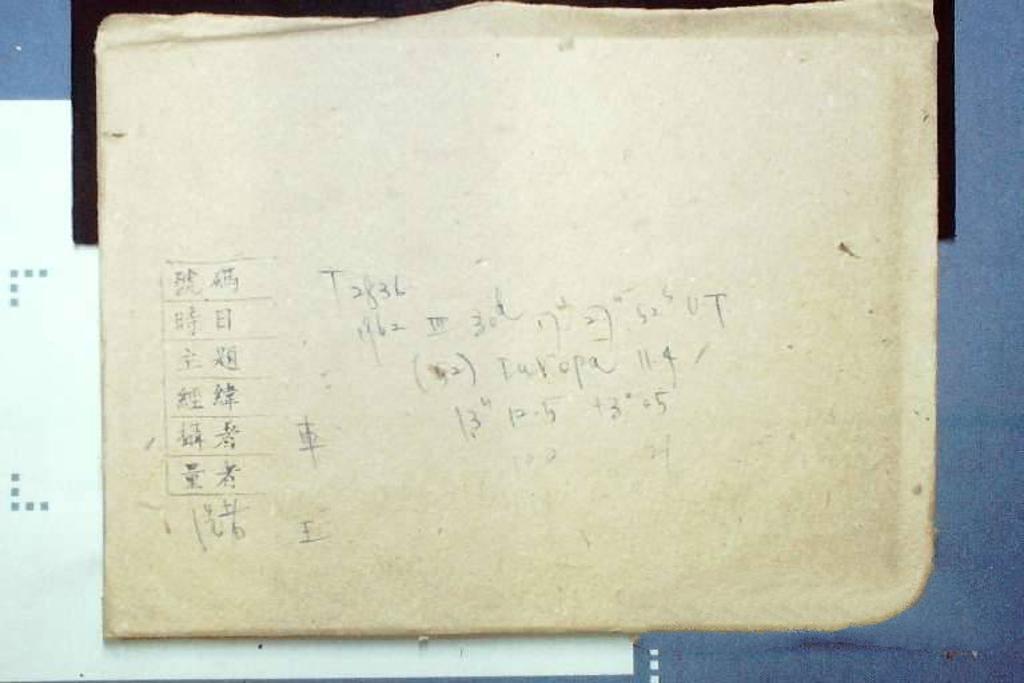 號碼 T2836
時日 1962 III 30d 17h 27m 52s UT
主題 (52) Europa 11.4
經緯 13h 12.5 +3° 05
攝者 車
量者
王